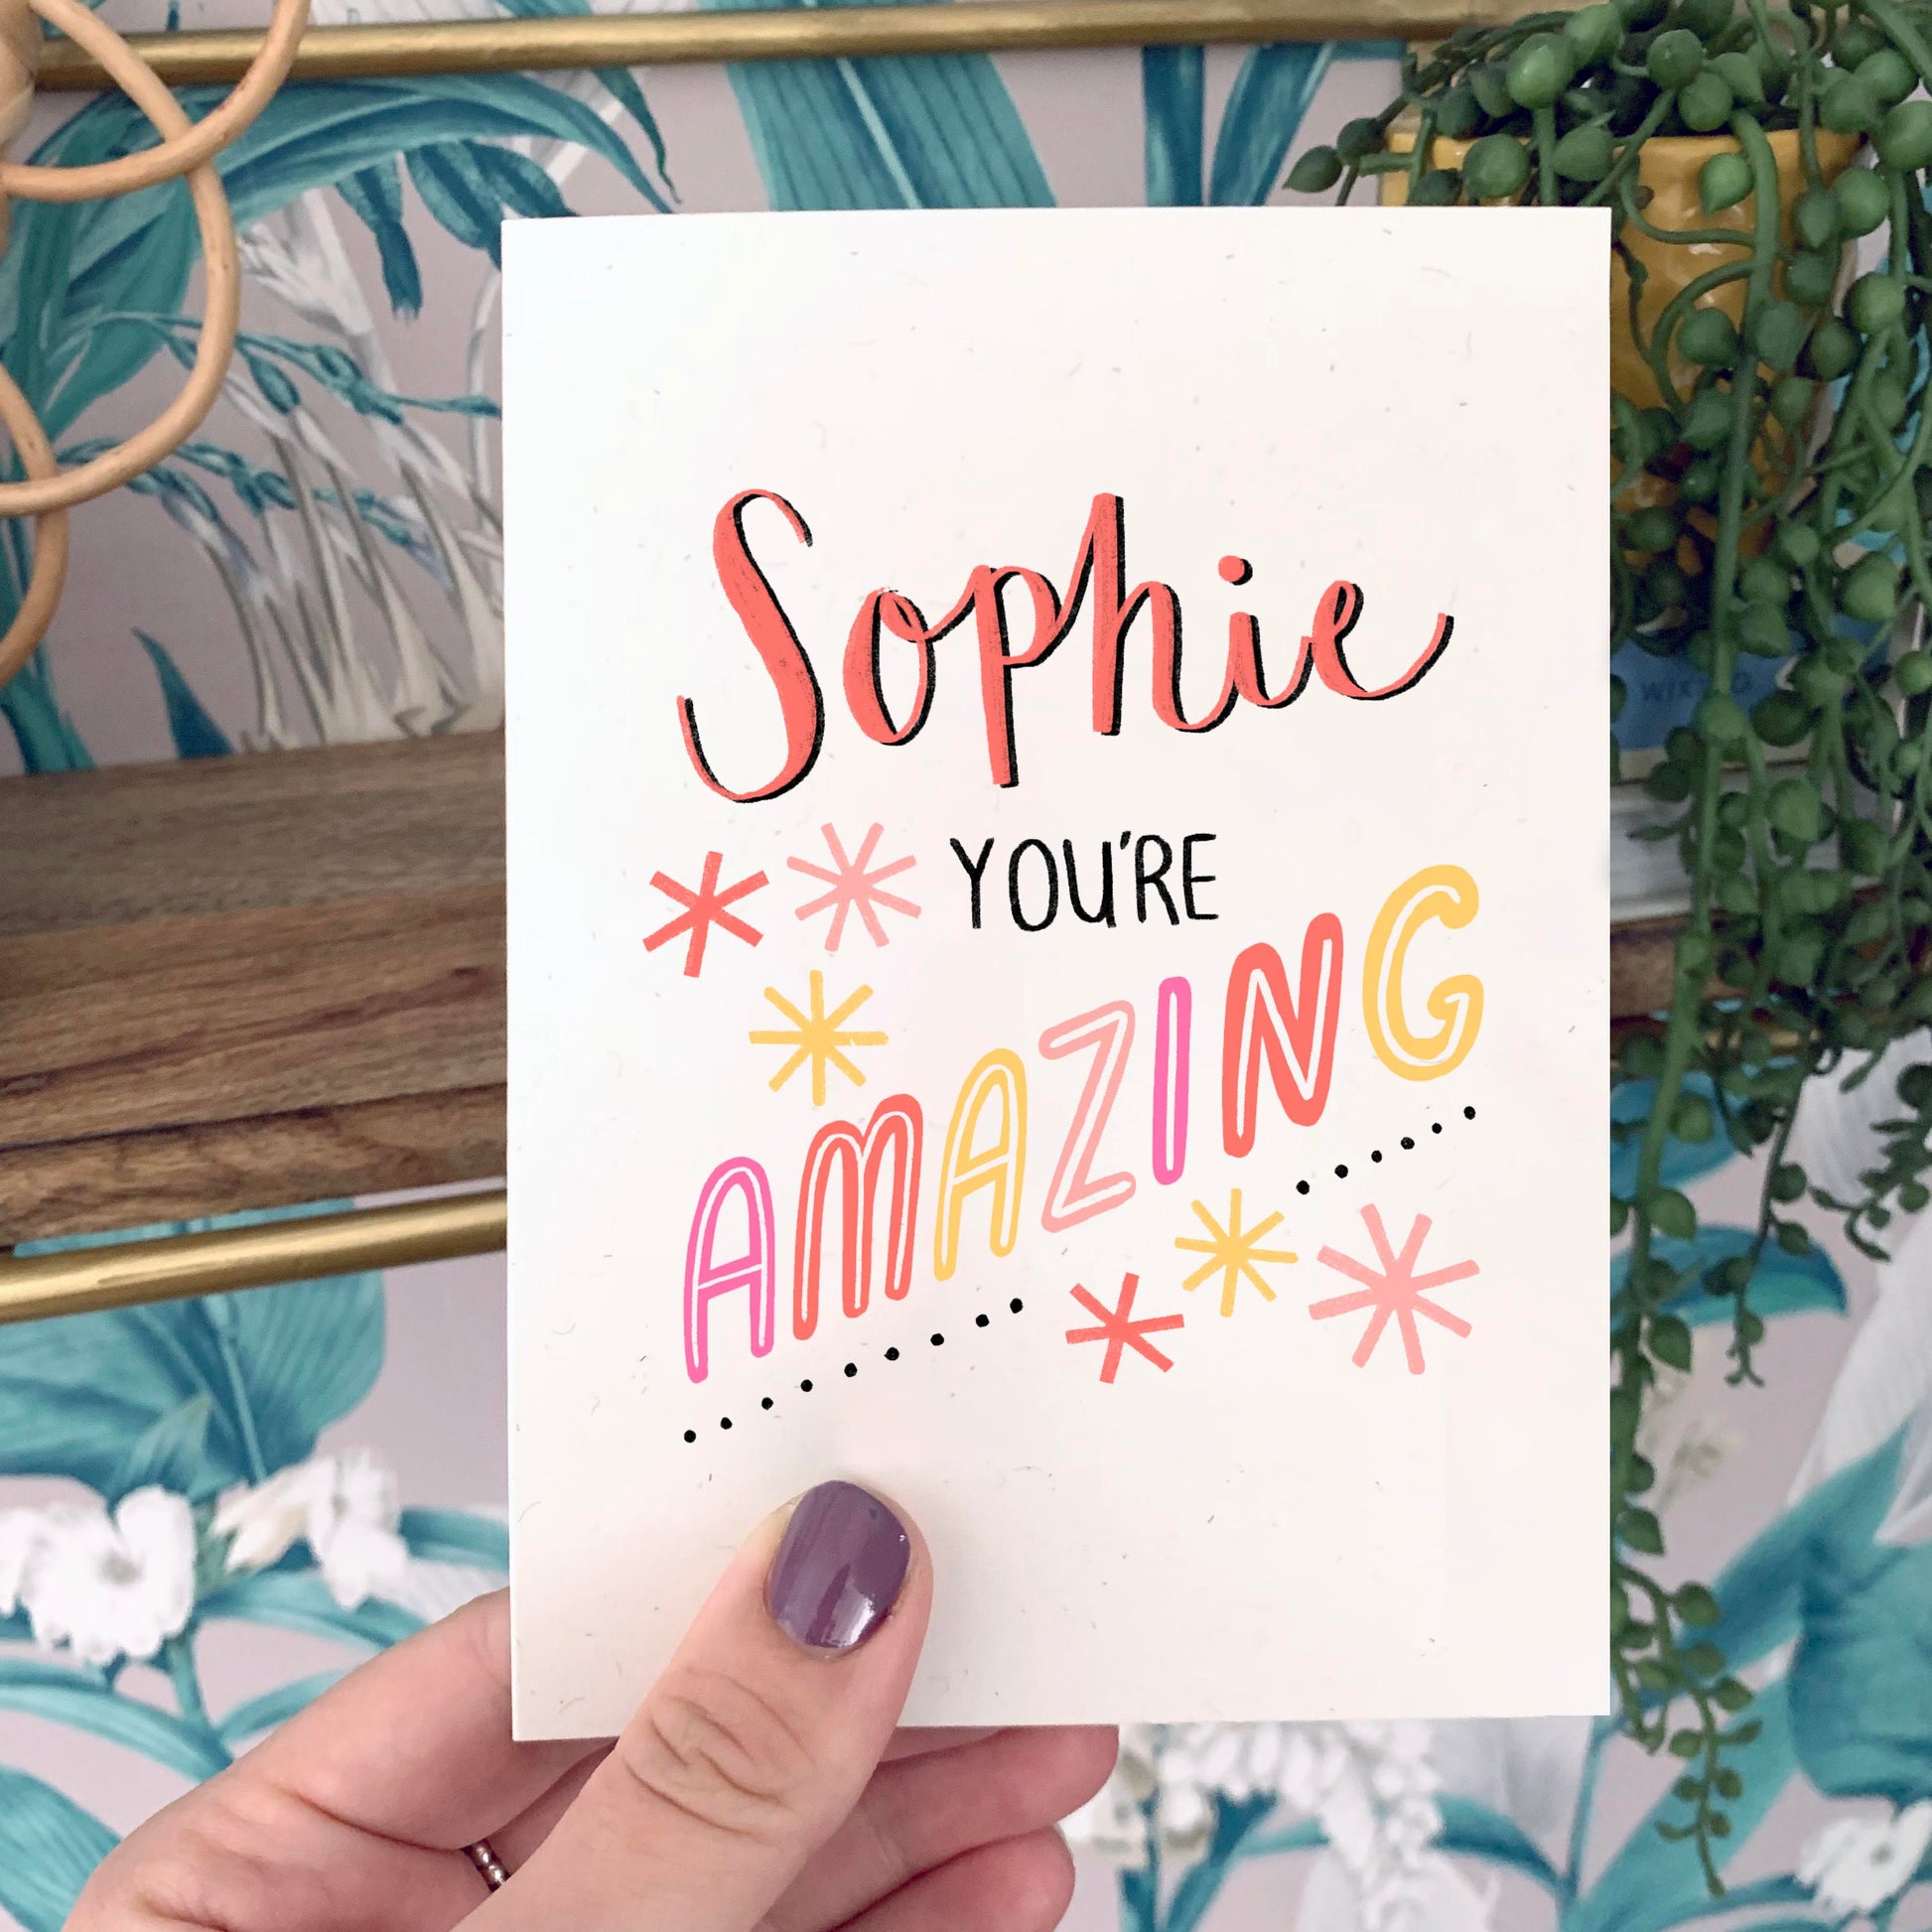 Sophie
YOU'RE
AMAZING